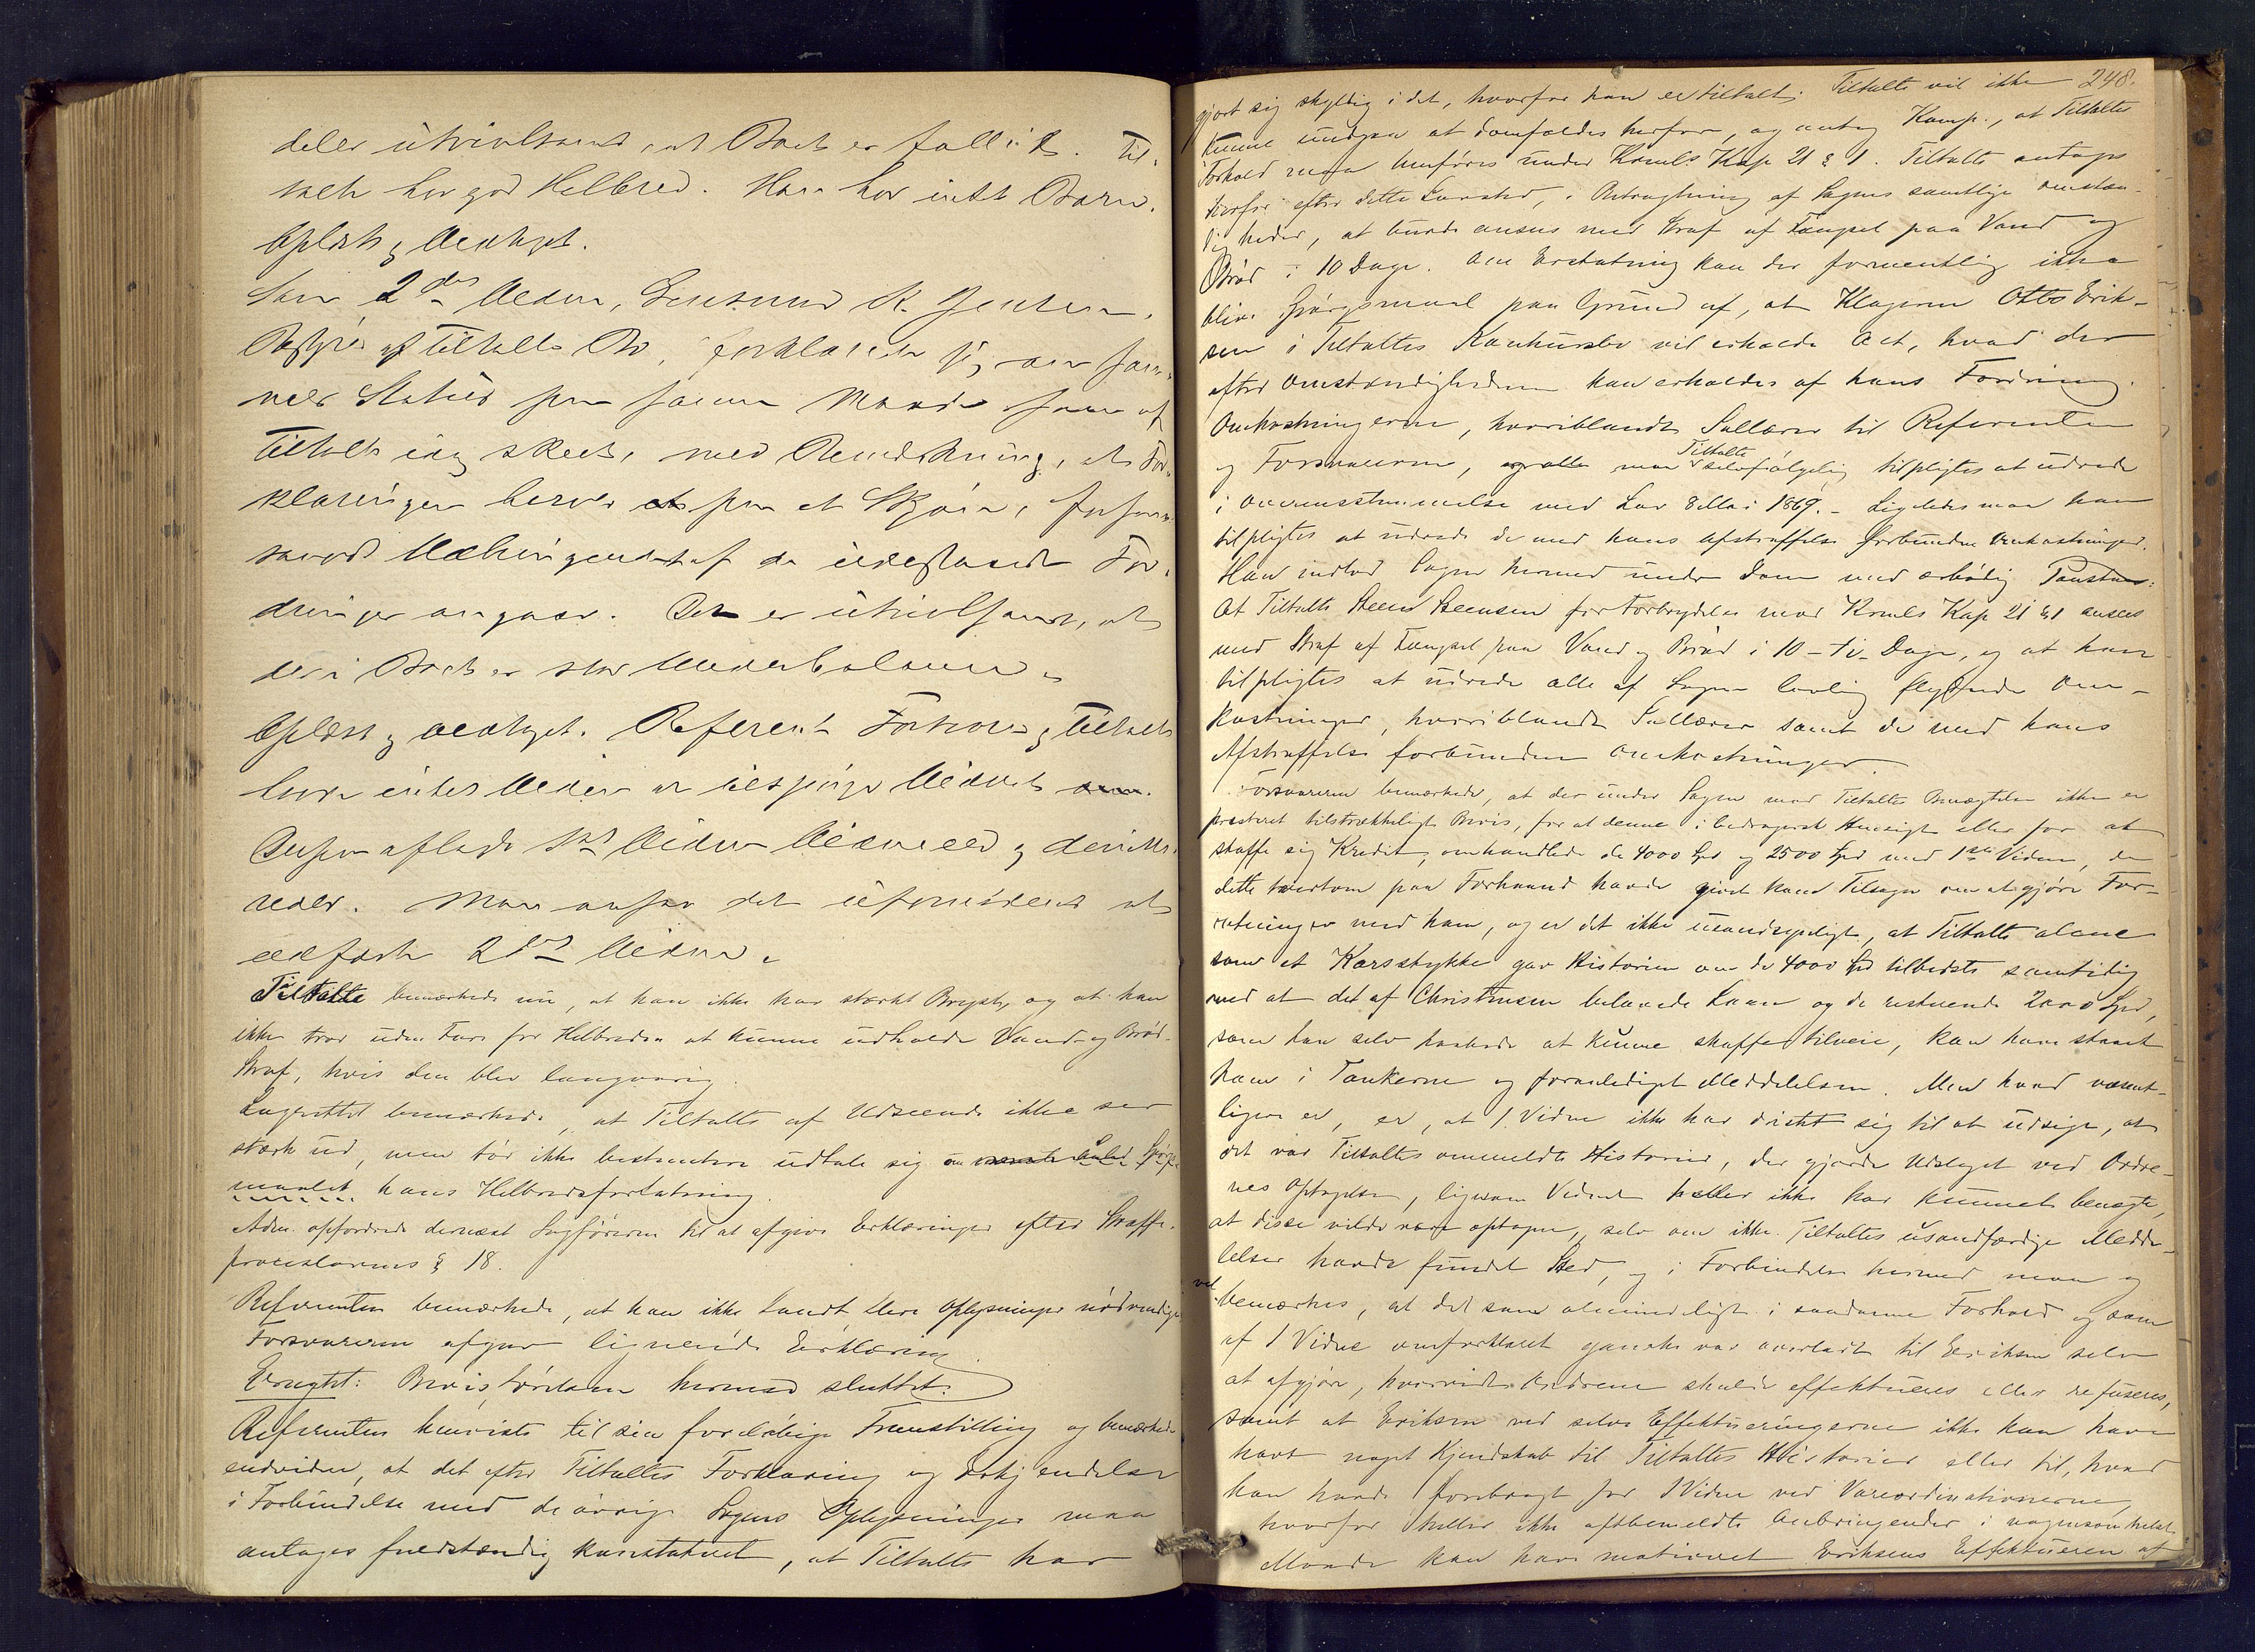 deles utvivlsomt, at Boet er fallit. Til-
talte har god Helbred. Han har intet Barn.
Oplæst og Vedtaget.
Som 2det Vidne, K. Jensen,
Bestyrer af Tiltaltes Bo, forklarede sig om sam-
mes Status paa samme Maade som af
Tiltalte idag skeet, med Bemærkning, at For-
klaringen beror paa et Skjøn, forsaa-
vidt Udbringendet af de udestaaende For-
dringer angaar. Det er utvivlsomt, at
der i Boet er stor Underbalance.
Oplæst og vedtaget. Referent Forsvarer og Tiltalte
havde intet videre at udspørge Vidnet
Derpaa aflagde 1ste Vidne Vidneeed og dimitte-
redes. Man ansaa det ufornødent at
edfæste 2det Vidne.
Tiltalte bemærkede nu, at han ikke har stærkt Bryst, og at han
ikke tror uden Fare for Helbreden at kunne udholde Vand- og Brød-
Straf, hvis den blev langvarig.
Lagretten bemærkede, at Tiltalte af Udseende ikke ser
stærk ud, men tør ikke bestemtere udtale sig om Spørgs-
maalet hans Helbredsforfatning.
Adm. opfordrede dernæst Sagførerne til at afgive Erklæringer efter Straffe-
proceslovens § 18.
Referenten bemærkede, at han ikke fandt flere Oplysninger nødvendige.
Forsvareren afgav lignende Erklæring.
Eragtet: Bevisførelsen hermed sluttet.
Referenten henviste til sin foreløbige Fremstilling og bemærkede
endvidere, at det efter Tiltaltes Forklaring og Erkjendelse
i Forbindelse med de øvrige Sagens Oplysninger maa
antages fuldstændig konstateret, at Tiltalte har
248.
gjort sig skyldig i det, hvorfor han er tiltalt. Tiltalte vil ikke
kunne undgaa at domfældes herfor, og antog Komp., at Tiltaltes
Forhold maa henføres under Krmls Kap 21 § 1. Tiltalte antages
derfor efter dette Lovsted, i Betragtning af Sagens samtlige Omstæn-
digheder, at burde ansees med Straf af Fængsel paa Vand og
Brød i 10 Dage. Om Erstatning kan der formentlig ikke
blive Spørgsmaal paa Grund af, at Klageren Otto Erik-
sen i Tiltaltes Konkursbo vil erholde Alt, hvad der
efter Omstændighederne kan erholdes af hans Fordring.
Omkostningerne, hvoriblandt Sallærer til Referenten
og Forsvareren, maa Tiltalte selvfølgelig tilpligtes at udrede
i Overensstemmelse med Lov 8 Mai 1869. – Ligeledes maa han
tilpligtes at udrede de med hans Afstraffelse forbundne Omkostninger.
Han indlod Sagen hermed under Dom med ærbødig Paastand:
At Tiltalte Steen Steensen for Forbrydelse mod Krmls Kap 21 § 1 ansees
med Straf af Fængsel paa Vand og Brød i 10 – ti – Dage, og at han
tilpligtes at udrede alle af Sagen lovlig flydende Om-
kostninger, hvoriblandt Sallærer samt de med hans
Afstraffelse forbundne Omkostninger.
Forsvareren bemærkede, at der under Sagen mod Tiltaltes Benægtelse ikke er
præsteret tilstrækkeligt Bevis, for at denne i bedragersk Hensigt eller for at
skaffe sig Kredit, omhandlede de 4000 Spd og 2500 Spd med 1ste Vidne, da
dette tvertom paa Forhaand havde givet ham Tilsagn om at gjøre For-
retninger med ham, og er det ikke usandsynligt, at Tiltalte alene
som et Kæreskykke gav Historien om de 4000 Spd tilbedste samtidig
med at det af Christensen belovede Laan og de resterende 2000 Spd,
som han selv haabede at kunne skaffe tilveie, kan have staaet
ham i Tankerne og foranlediget Meddelelsen. Men hvad væsent-
ligere er, er, at 1. Vidne ikke har dristet sig til at udsige, at
det var Tiltaltes ommeldte Historier, der gjorde Udslaget ved Ordre-
nes Optagelse, ligesom Vidnet heller ikke har kunnet benægte,
at disse vilde være optagne, selv om ikke Tiltaltes usandfærdige Medde-
lelser havde fundet Sted, og i Forbindelse hermed maa og
vel bemærkes, at det som almindeligt i saadanne Forhold og som
af 1 Vidne omforklaret ganske var overladt til Eriksen selv
at afgjøre, hvorvidt Ordrene skulde effektueres eller refuseres,
samt at Eriksen ved selve Effektueringerne ikke kan have
havt noget Kjendskab til Tiltaltes Historier eller til, hvad
han havde forebragt for 1 Vidne ved Vareordinationerne,
hvorfor heller ikke oftbemeldte Anbringender i nogensomhelst
Maade kan have motiveret Eriksens Effektueren af